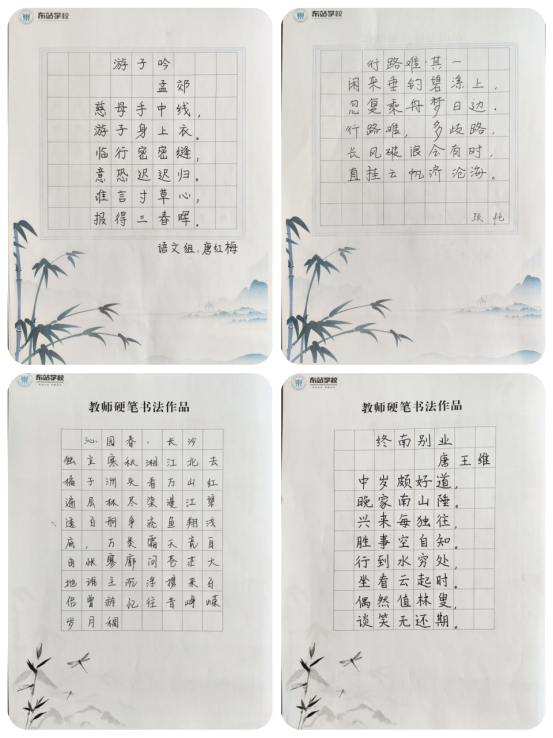 东站学校
游子吟
孟郊
慈母手中线，
游子身上衣。
临行密密缝，
意恐迟迟归。
谁言寸草心，
报得三春晖。
语文组，唐红梅
东站学校
行路难·其一
闲来垂钓碧溪上，
忽复乘舟梦日边。
行路难，多歧路，
长风破浪会有时，
直挂云帆济沧海。
东站学校
教师硬笔书法作品
沁园春·长沙
独立寒秋湘江北去
橘子洲头看万山红
遍层林尽染漫江碧
透百舸争流鱼翔浅
底，万类霜天竞自
由怅寥廓问苍茫大
地谁主沉浮携来百
侣曾游忆往昔峥嵘
岁月稠
东站学校
教师硬笔书法作品
终南别业
唐王维
中岁颇好道，
晚家南山陲。
兴来每独往，
胜事空自知。
行到水穷处，
坐看云起时。
偶然值林叟，
谈笑无还期。